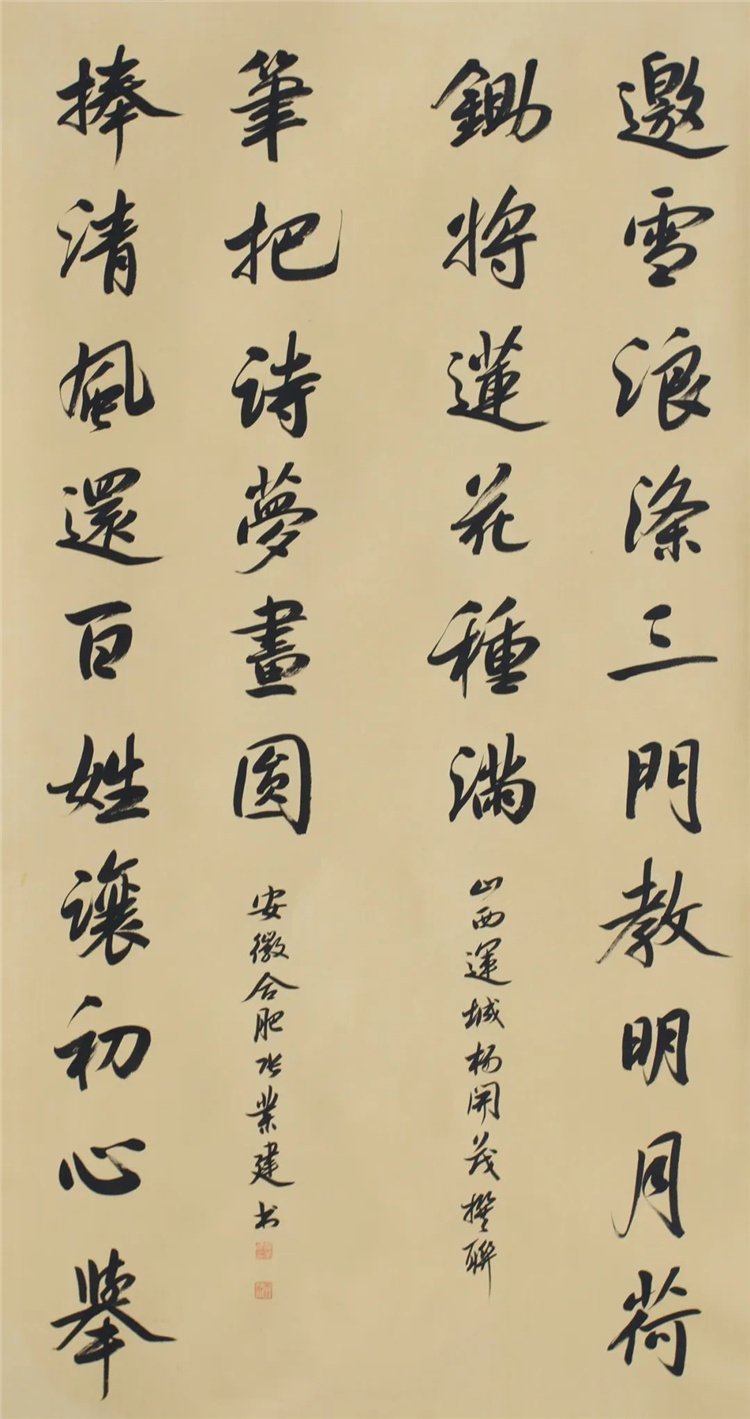 邀雪浪涤三門教明月荷
鋤將蓮花種滿
山西運城杨開茂撰聯
捧清風還百姓讓初心舉
筆把詩夢畫圓
安徽合肥张業建书